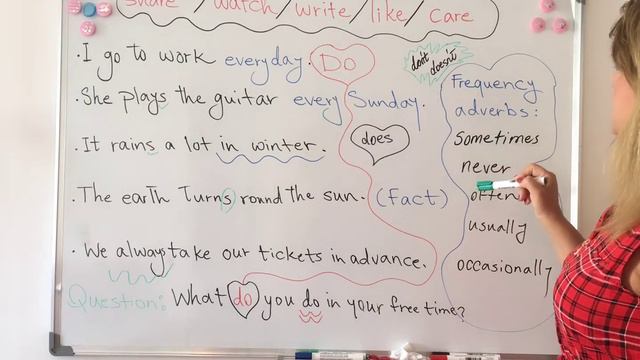 share / watch / write / like / care
· I go to work everyday. Do
· She plays the guitar every Sunday.
· It rains a lot in winter.
does
· The earth turns round the sun. (Fact)
· We always take our tickets in advance.
Question: What do you do in your free time?
don't
doesn't
Frequency
adverbs:
sometimes
never
often
usually
occasionally